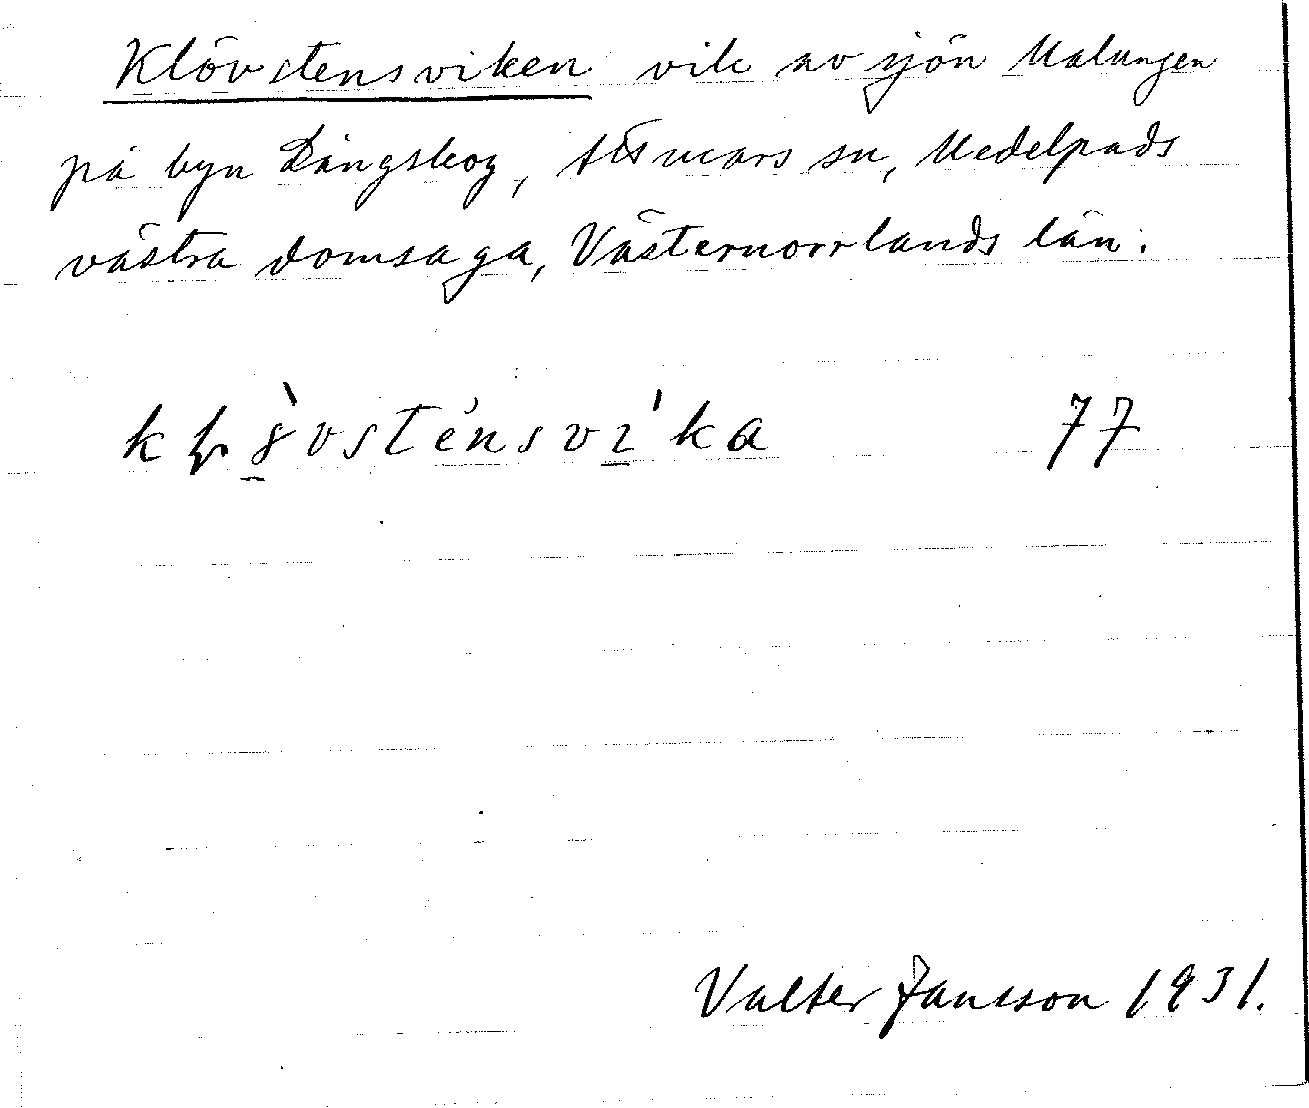 Klövstensviken vik av sjön Malungen
på byn Långskog, Attmars sn, Medelpads
västra domsaga, Västernorrlands län.
77
Valter Jansson 1931.